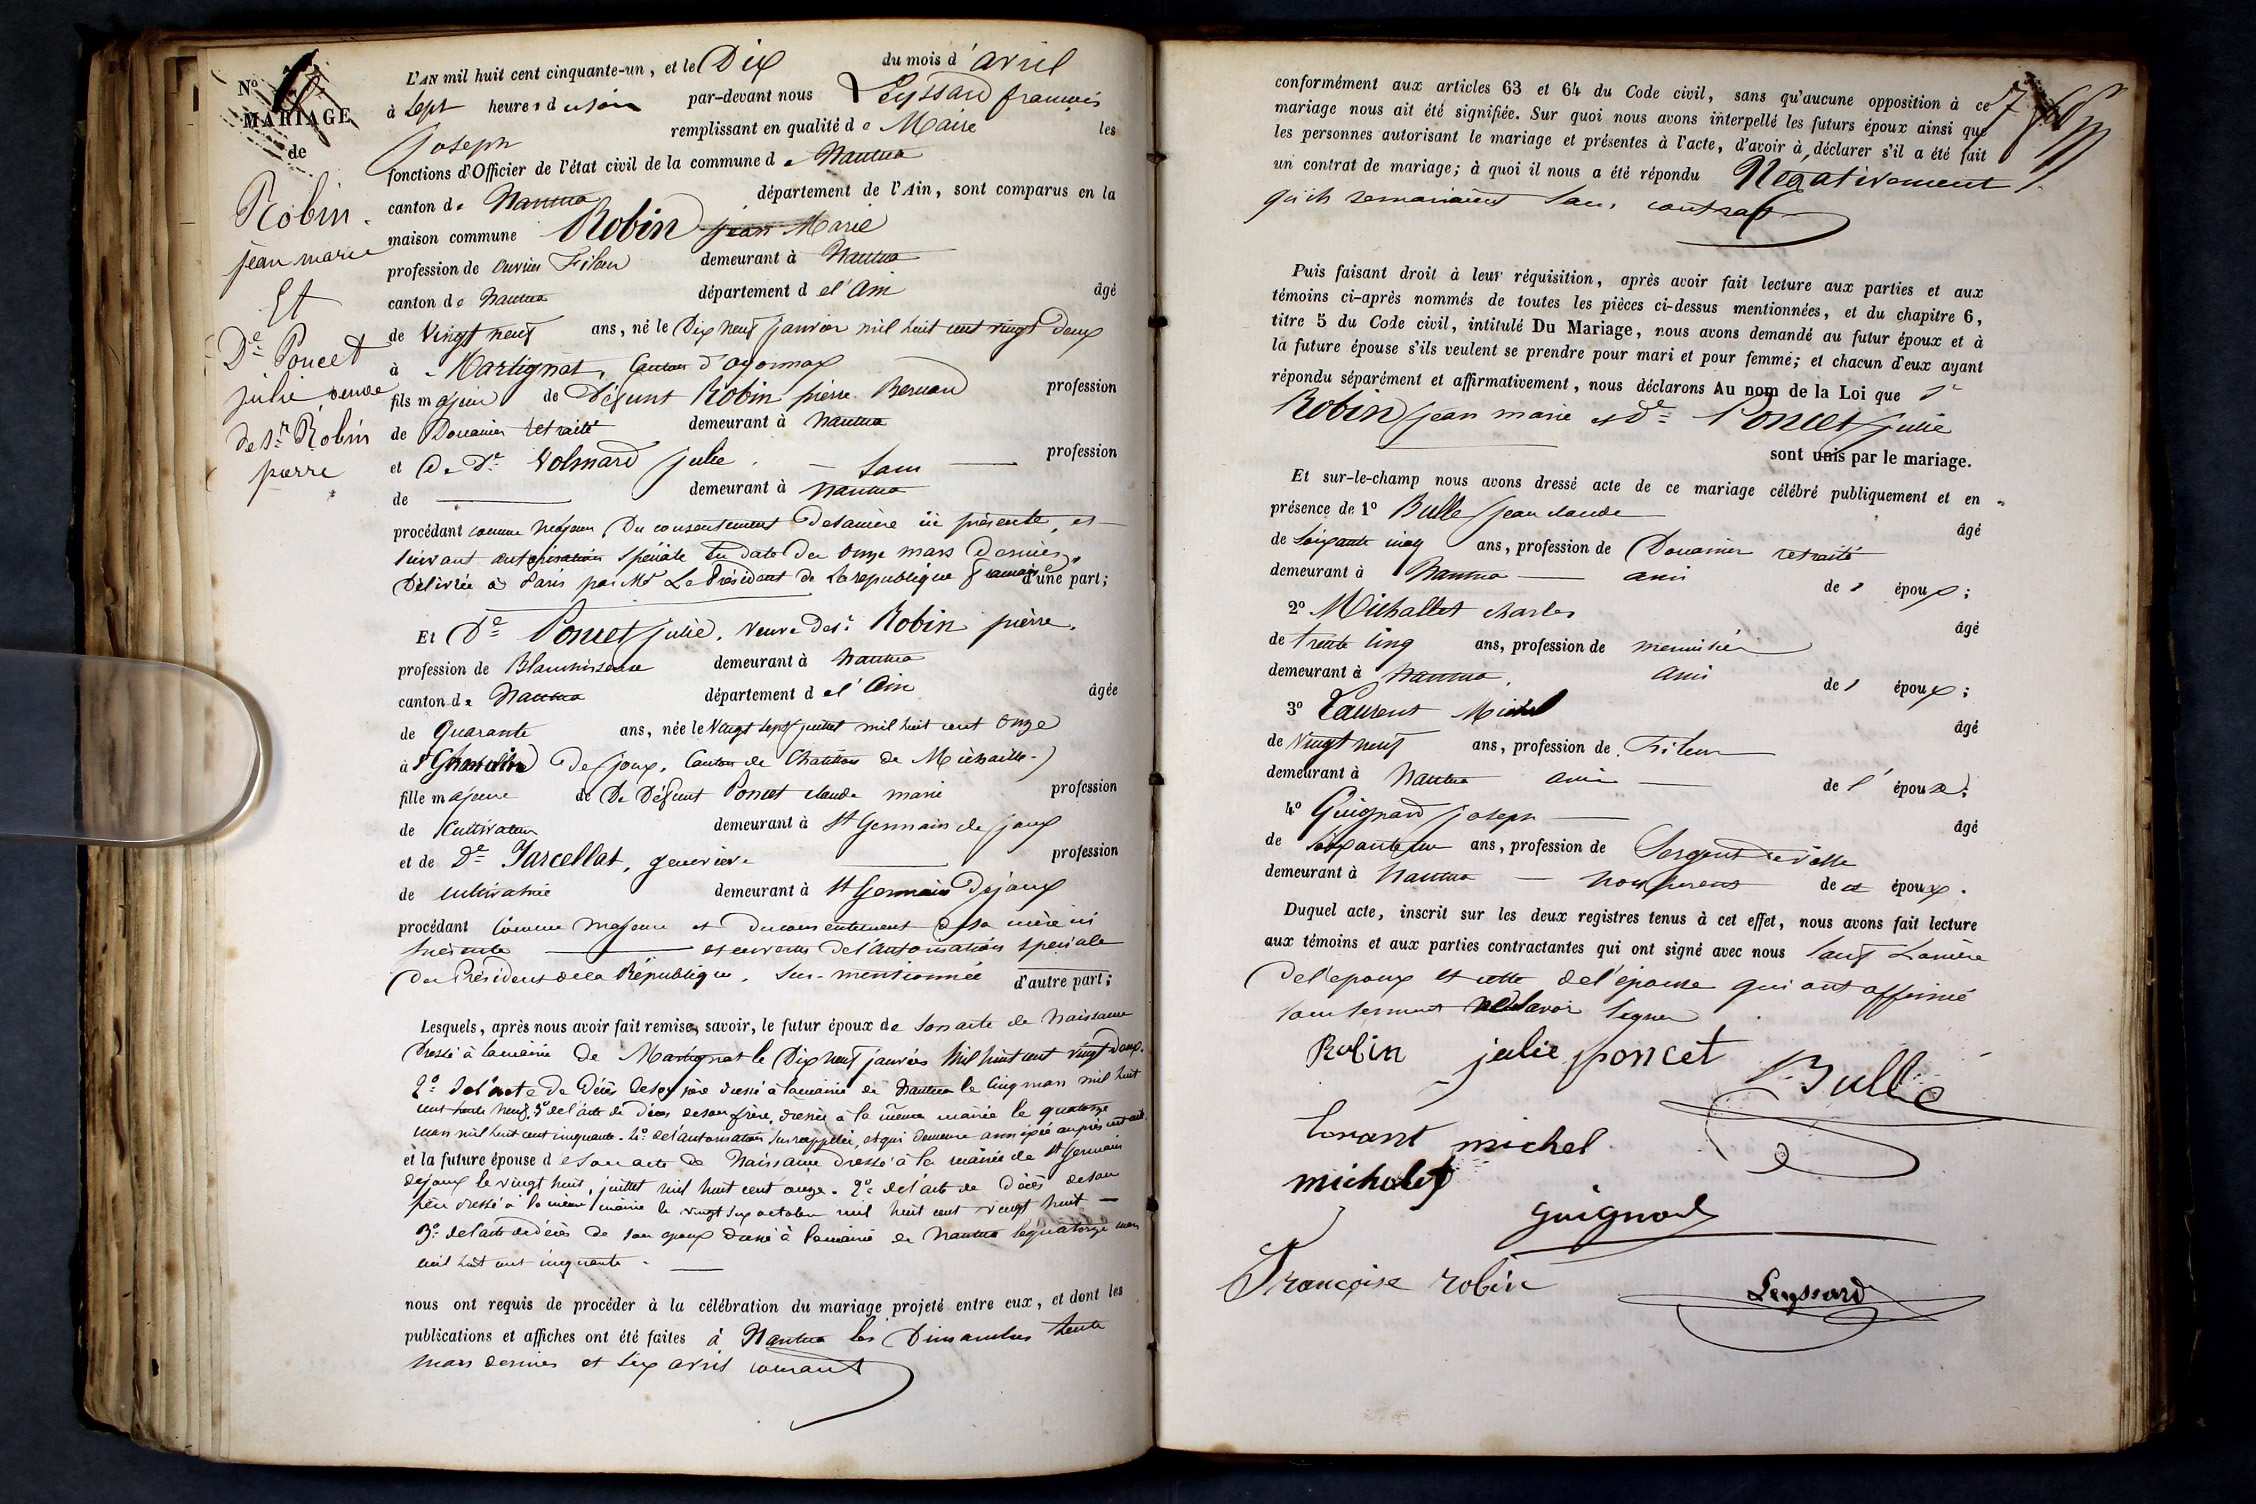 N°
MARIAGE
de
Robin
jean marie
Et
De Poncet
julie veuve
de Sr Robin
pierre
L'AN mil huit cent cinquante-un, et le Dix du mois d'avril
à Sept heures du soir par-devant nous Leyssard françois
joseph remplissant en qualité de Maire les
fonctions d'Officier de l'état civil de la commune de Nantua
canton de Nantua département de l'Ain, sont comparus en la
maison commune Robin jean Marie
profession de ouvrier Fileur demeurant à Nantua
canton de Nantua département de l'Ain âgé
de Vingt neuf ans, né le Dix neuf janvier mil huit cent vingt deux
à Martignat, Canton d'oyonnax
fils majeur de Défunt Robin pierre Bernard profession
de Douanier retraité demeurant à Nantua
et de De Volmard julie. — Sans — profession
de — demeurant à Nantua
procédant comme majeur, Du consentement de sa mère ici présente, et
suivant autorisation spéciale En date du onze mars Dernier,
Délivrée à Paris par Mr Le Président de la république française d'une part;
Et De Poncet julie, veuve de Sr Robin pierre.
profession de Blanchisseuse demeurant à Nantua
canton de Nantua département de l'Ain âgée
de Quarante ans, née le Vingt sept juillet mil huit cent onze
à St Germain De joux, Canton de Chatillon de Michaille
fille majeure de De Défunt Poncet claude marie profession
de Cultivateur demeurant à St Germain de joux
et de De Tarcellat, genevieve profession
de cultivatrice demeurant à St Germain De joux
procédant Comme majeure et du consentement de sa mère ici
présente — et en vertu de l'autorisation spéciale
Du Président de la République, sus-mentionnée d'autre part;
Lesquels, après nous avoir fait remise, savoir, le futur époux de son acte de Naissance
Dressé à la mairie de Martignat le Dix neuf janvier Mil huit cent vingt deux.
2° De l'acte de Décès de son père dressé à la mairie de Nantua le Cinq mars mil huit
cent trente neuf, 3° de l'acte de Décès de son frère, dressé à la même mairie le quatorze
mars mil huit cent cinquante. 4° de l'autorisation susrappellée, et qui demeure annexée au présent acte
et la future épouse de son acte de Naissance Dressé à la mairie de St Germain
de joux le vingt huit, juillet mil huit cent onze. 2° de l'acte de Décès de son
père dressé à la même mairie le vingt six octobre mil huit cent vingt huit —
3° de l'acte de décès de son epoux dressé à la mairie de Nantua le quatorze mars
mil huit cent cinquante. —
nous ont requis de procéder à la célébration du mariage projeté entre eux, et dont les
publications et affiches ont été faites à Nantua les Dimanches trente
mars dernier et Six avril courant
conformément aux articles 63 et 64 du Code civil, sans qu'aucune opposition à ce
mariage nous ait été signifiée. Sur quoi nous avons interpellé les futurs époux ainsi que
les personnes autorisant le mariage et présentes à l'acte, d'avoir à déclarer s'il a été fait
un contrat de mariage; à quoi il nous a été répondu Négativement
qu'ils se mariaient sans contrat
Puis faisant droit à leur réquisition, après avoir fait lecture aux parties et aux
témoins ci-après nommés de toutes les pièces ci-dessus mentionnées, et du chapitre 6,
titre 5 du Code civil, intitulé Du Mariage, nous avons demandé au futur époux et à
la future épouse s'ils veulent se prendre pour mari et pour femme; et chacun d'eux ayant
répondu séparément et affirmativement, nous déclarons Au nom de la Loi que Sr
Robin jean marie et De Poncet julie
sont unis par le mariage.
Et sur-le-champ nous avons dressé acte de ce mariage célébré publiquement et en
présence de 1° Bulle jean claude âgé
de Soixante cinq ans, profession de Douanier retraité
demeurant à Nantua — ami de l'époux;
2° Michallet charles âgé
de trente cinq ans, profession de menuisier
demeurant à Nantua, ami de l'époux;
3° Laurent Michel âgé
de Vingt neuf ans, profession de Fileur
demeurant à Nantua ami — de l'épouse;
4° Guignard joseph — âgé
de Soixante un ans, profession de Sergent de ville
demeurant à Nantua — non parent des époux.
Duquel acte, inscrit sur les deux registres tenus à cet effet, nous avons fait lecture
aux témoins et aux parties contractantes qui ont signé avec nous Sauf La mère
de l'epoux et celle de l'épouse qui ont affirmé
sous serment ne savoir Signer
Robin julie poncet Bulle
lorant michel
michalet
guignard
Françoise robin
Leyssard